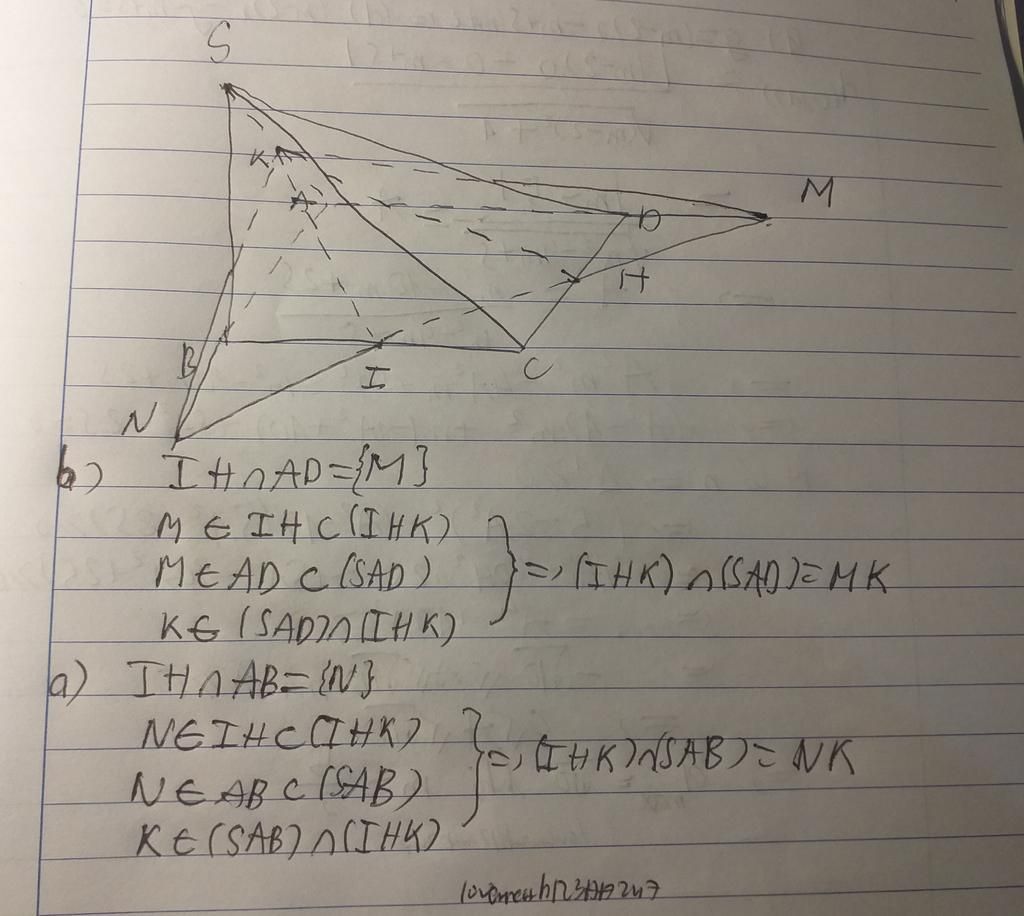 S
K
A
D
M
H
B
I
C
N
b) IH∩AD={M}
M ∈ IH ⊂ (IHK)
M ∈ AD ⊂ (SAD)
K ∈ (SAD)∩(IHK)
} => (IHK)∩(SAD)= MK
a) IH∩AB={N}
N ∈ IH ⊂ (IHK)
N ∈ AB ⊂ (SAB)
K ∈ (SAB)∩(IHK)
} => (IHK)∩(SAB)= NK